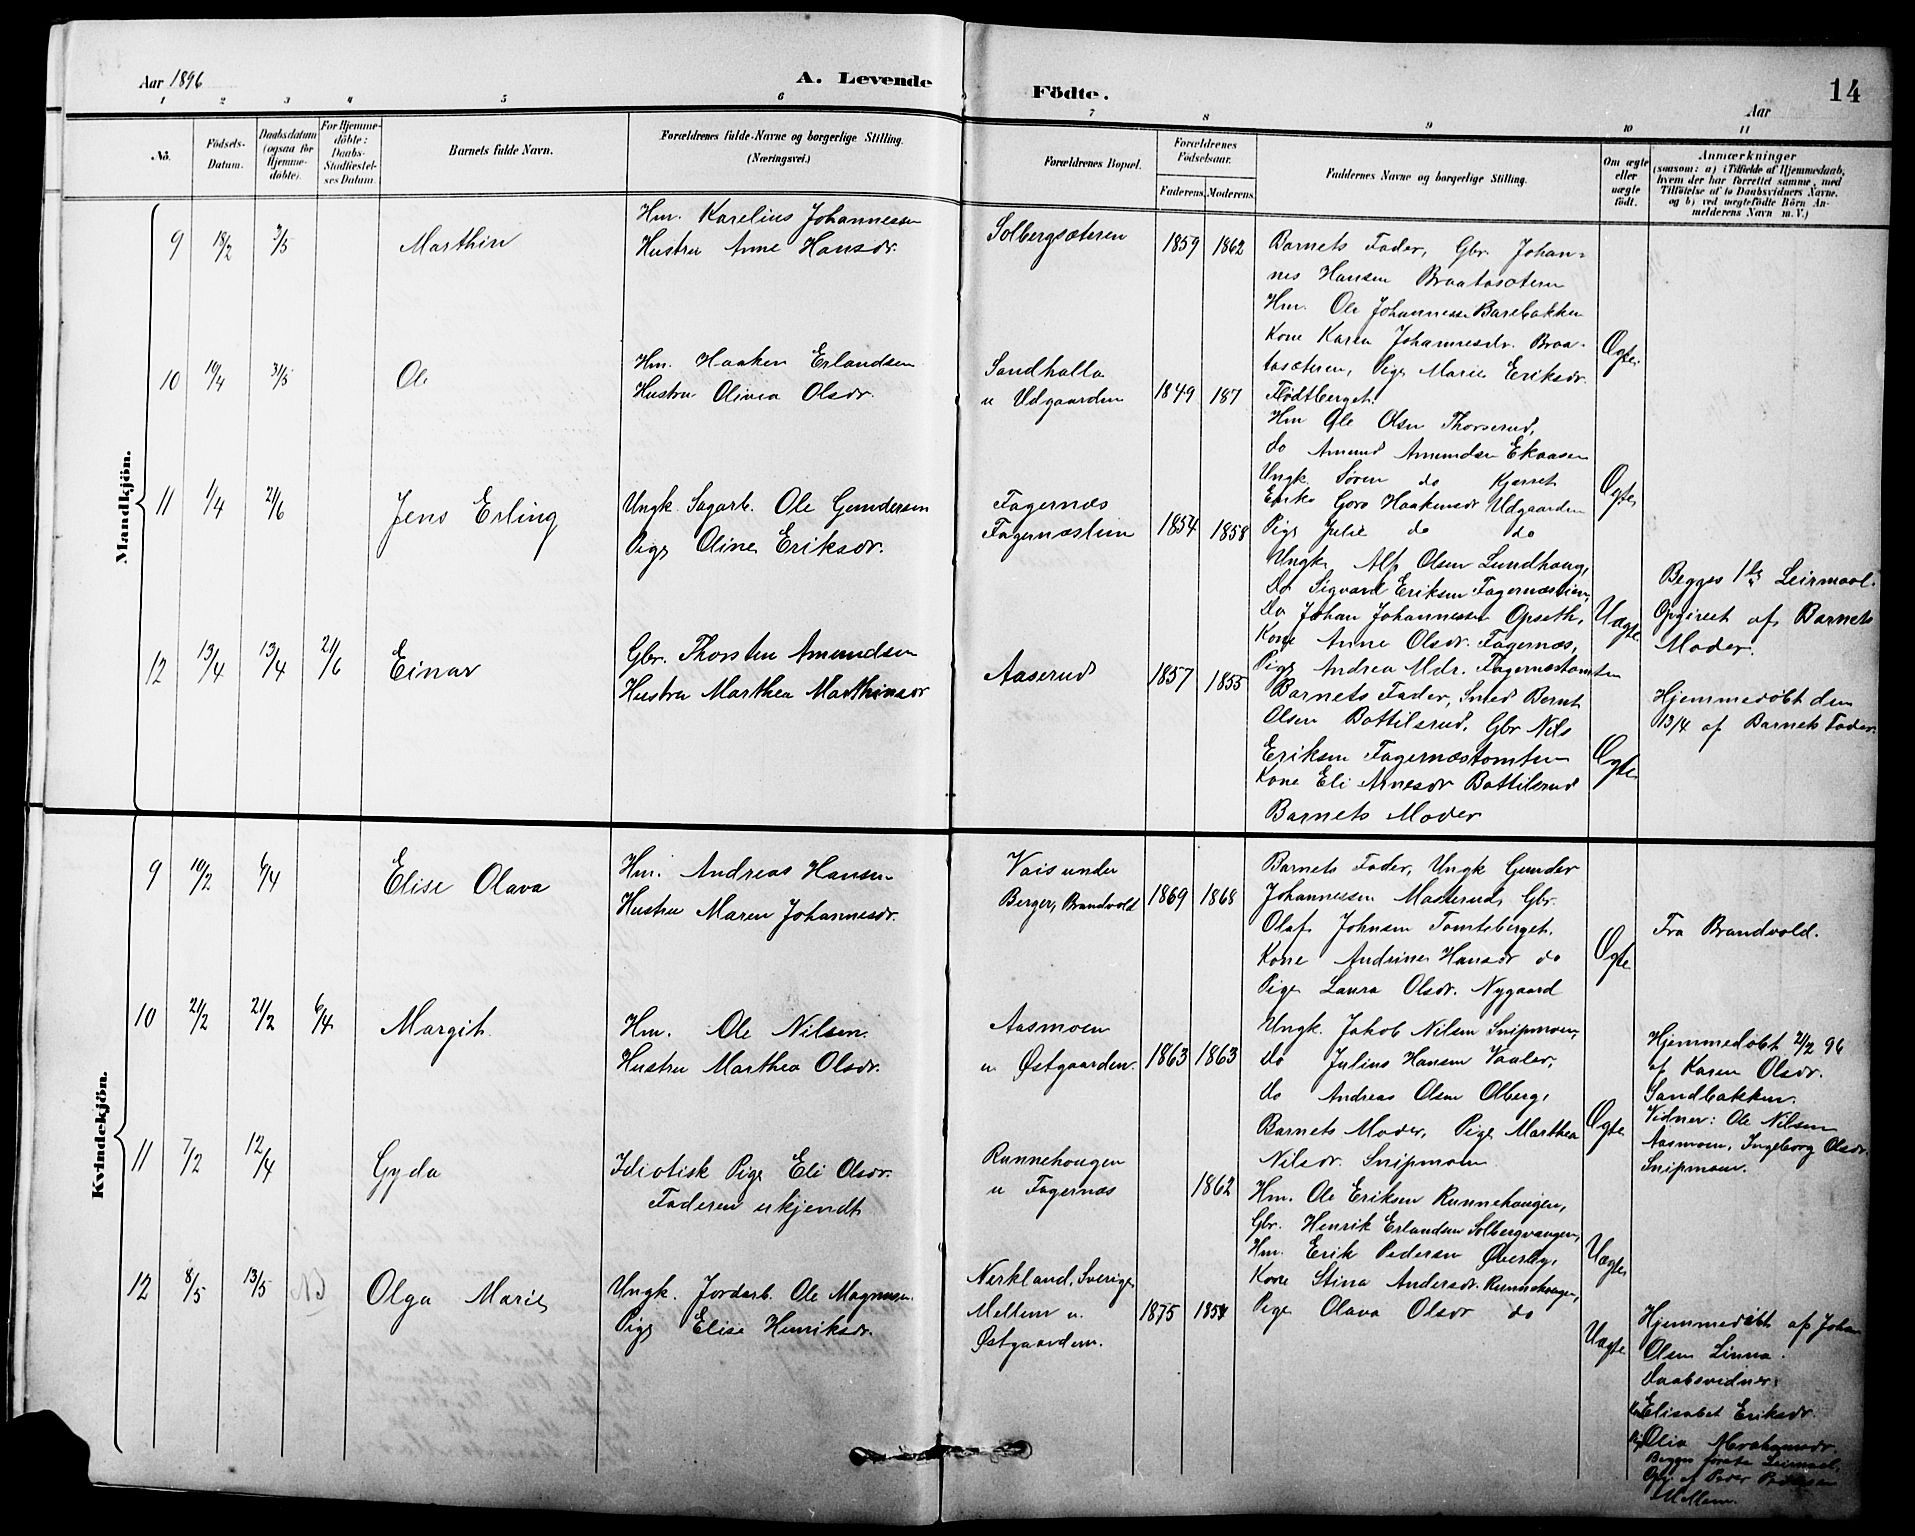 Aar 1896
A. Levende
Födte.
Aar
14
1 2 3 4 5 6 7 8 9 10 11
No.
Födsels-
Datum.
Daabsdatum
(ogsaa for
Hjemme-
döbte).
For Hjemme-
döbte:
Daabs-
Stadfæstel-
ses Datum.
Barnets fulde Navn.
Forældrenes fulde Navne og borgerlige Stilling.
(Næringsvei.)
Forældrenes Bopæl.
Forældrenes
Födselsaar.
Faderens. Moderens.
Faddernes Navne og borgerlige Stilling.
Om ægte
eller
uægte
födt.
Anmærkninger
(saasom: a) i Tilfælde af Hjemmedaab,
hvem der har forrettet samme, med
Tilföielse af to Daabsvidners Navne.
og b) ved uægtefödte Börn An-
melderens Navn m. V.)
Mandkjön.
9 18/2 3/5
Marthin
Hm. Karelius Johannessen
Hustru Anne Hansdr.
Solbergsæteren
1859 1862
Barnets Fader, Gbr. Johan-
nes Hansen Braatasæteren
Hm. Ole Johannessen Barebakken
Kone Karen Johannesdr. Braa-
tasæteren, Pige Marie Eriksdr.
Flödtberget.
Ægte
10 10/4 31/5
Ole
Hm. Haaken Erlandsen
Hustru Olivia Olsdr.
Sandhalla
u Udgaarden
1849 187
Hm Ole Olsen Thorserud,
do Amund Amundsen Ekaasen
Ungk Søren do Kjerret
Enke Goro Haakensdr Udgaarden
Pige Julie do do
Ægte
11 1/4 21/6
Jens Erling
Ungk. Sagarb. Ole Gundersen
Pige Oline Eriksdr.
Fagernæs
Fagernæstien
1854 1858
Ungk. Alf Olsen Lundhaug,
Do Sigvard Eriksen Fagernæstien,
Do Johan Johannessen Opseth,
Kone Anne Olsdr. Fagernæs,
Pige Andrea Mdr. Fagernæstomten
Uægte
Begges 1ste Leirmaal.
Opgivet af Barnets
Moder.
12 13/4 13/4 21/6
Einar
Gbr. Thorsten Amundsen
Hustru Marthea Marthinsdr
Aaserud
1857 1855
Barnets Fader, Smed Bernt
Olsen Bottilsrud, Gbr Nils
Eriksen Fagernæstomten
Kone Eli Arnesdr Bottilsrud
Barnets Moder
Ægte
Hjemmedøbt den
13/4 af Barnets Fader.
Kvindekjön.
9 10/2 6/4
Elise Olava
Hm. Andreas Hansen
Hustru Maren Johannesdr.
Vais under
Berger, Brandvold
1869 1868
Barnets Fader, Ungk Gunder
Johannessen Masterud, Gbr.
Olaf Johnsen Tomteberget,
Kone Andrine Hansdr do
Pige Laura Olsdr. Nygaard
Ægte
Fra Brandvold.
10 21/2 21/2 6/4
Margit
Hm. Ole Nilsen
Hustru Marthea Olsdr.
Aasmoen
u. Østgaarden.
1863 1863
Ungk. Jakob Nilsen Snipmoen,
do Julius Hansen Vaaler,
do Andreas Olsen Olberg,
Barnets Moder, Pige Marthea
Nilsdr. Snipmoen
Ægte
Hjemmedøbt 21/2 96
af Karen Olsdr.
Sandbakken.
Vidner: Ole Nilsen
Aasmoen, Ingeborg Olsdr.
Snipmoen.
11 7/2 12/4
Gyda
Idiotisk Pige Eli Olsdr.
Faderen ukjendt
Runnehaugen
u Fagernæs
1862
Hm. Ole Eriksen Runnehaugen,
Gbr. Henrik Erlandsen Solbergvangen,
Hm. Erik Pedersen Øverby,
Kone Stina Andersdr. Runnehaugen,
Pige Olava Olsdr do
Uægte
12 8/5 13/5
Olga Marie
Ungk. Jordarb. Ole Magnusen.
Pige Elise Henriksdr.
Nerkland, Sverige
Mellem u.
Østgaarden.
1875 1854
Uægte
Hjemmedöbt af Johan
Olsen Linna.
Daabsvidner:
Elisabet Eriksdr.
Olia Abrahamsdr.
Begges første Leirmaal.
Opg. af Peder Pedersen
Mellem.